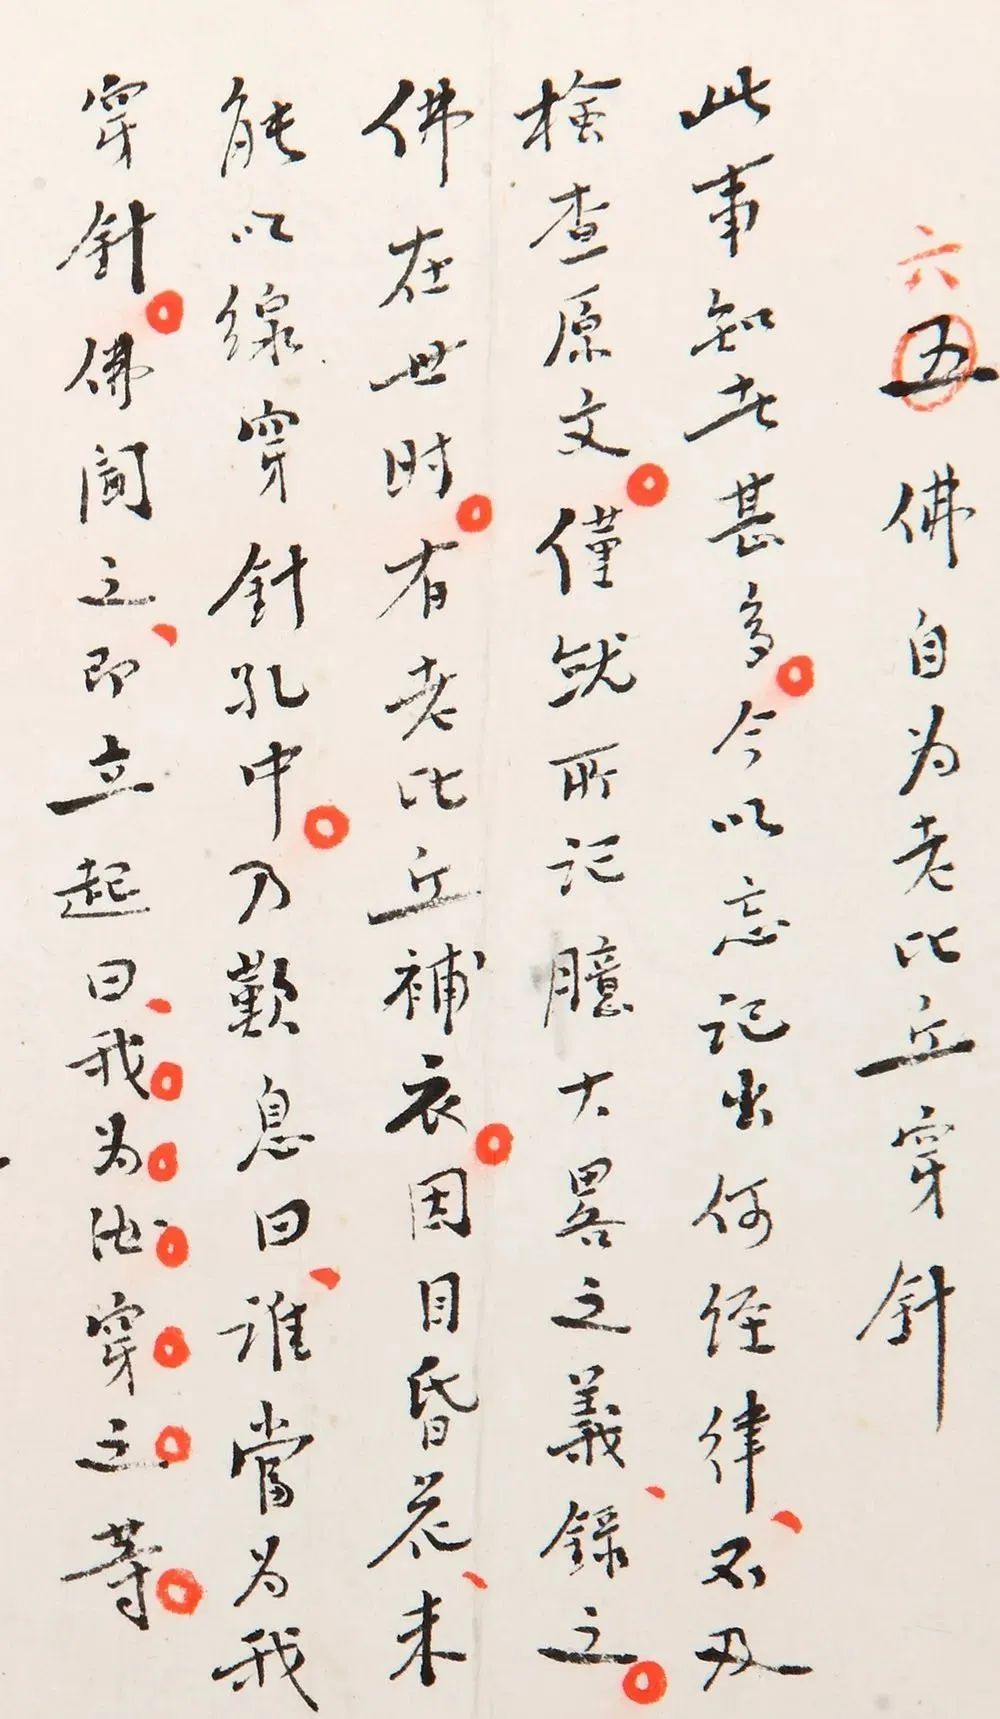 六五 佛自为老比丘穿针
此事知者甚多。今以忘记出何经律、不及
检查原文。僅就所记臆大畧之義、録之。
佛在世时。有老比丘補衣。因目昏花、未
能以線穿針孔中。乃歎息曰、谁當为我
穿針。佛闻之、即立起曰、我。为。汝。穿。之。等。